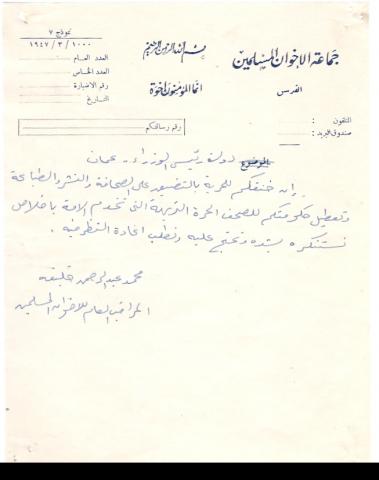 نموذج ٧
١٠٠٠ / ٣ / ١٩٤٧
بسم الله الرحمن الرحيم
جماعة الاخوان المسلمين
العدد العام
العدد الخاص
رقم الاضبارة
التاريخ
انما المؤمنون اخوة
التلفون :
صندوق البريد :
رقم رسالتكم
الموضوع دولة رئيس الوزراء - عمان
إن خنقكم للحرية بالتضييق على الصحافة والنشر والطباعة
وتعطيل حكومتكم للصحف الحرة النزيهة التي تخدم الامة باخلاص
نستنكره بشدة ونحتج عليه ونطلب اعادة النظر فيه .
محمد عبد الرحمن خليفه
المراقب العام للاخوان المسلمين